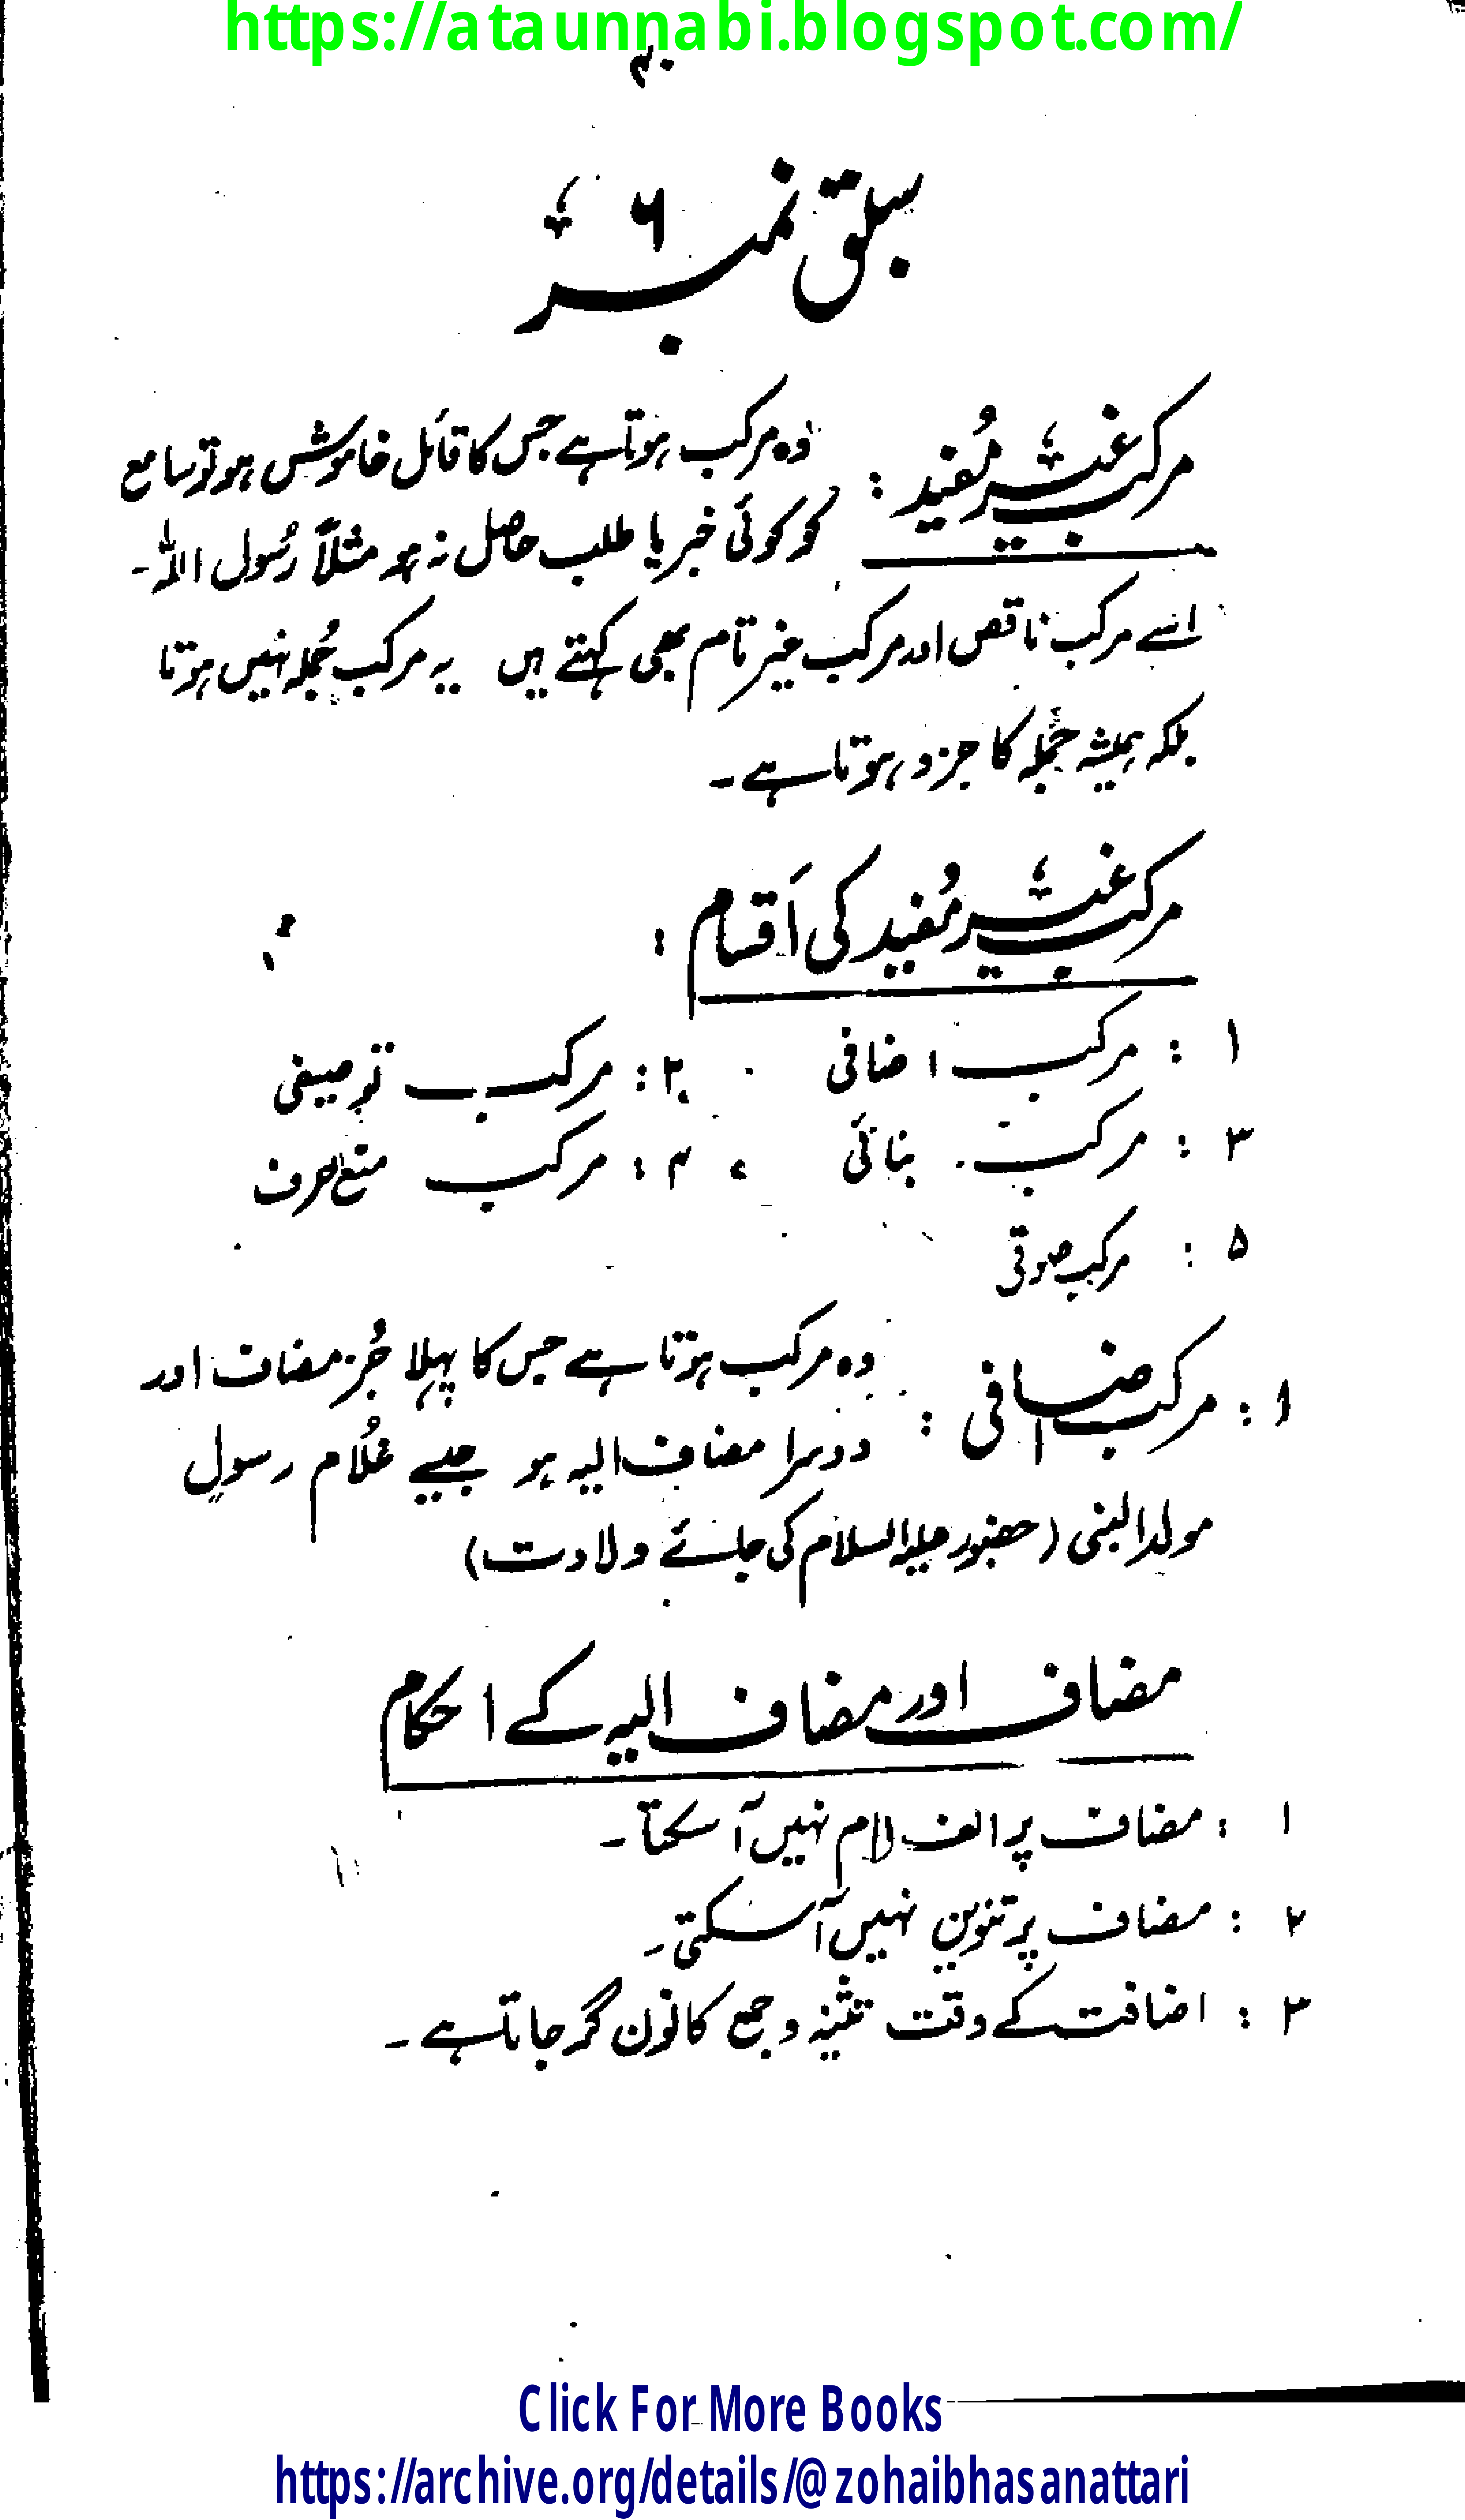 https://ataunnabi.blogspot.com/
۴۰
سبق نمبر ۶
مرکب غیر مُفید : وُہ مرکب ہوتا ہے جس کا قائل خاموش ہو تو سامع
کو کوئی خبر یا طلب حاصل نہ ہو مثلاً رَسُول اللہ۔
اسے مرکب ناقص اور مرکب غیر تام بھی کہتے ہیں یہ مرکب جُملہ نہیں ہوتا
بلکہ ہمیشہ جُملہ کا جزو ہوتا ہے۔
مرکب غیر مُفید کی اَقسام :
۱ : مرکب اضافی ۲ : مرکب توصیفی
۳ : مرکب بنائی ، ۴ : مرکب منع صرف
۵ : مرکب صوتی
۱ : مرکب اضافی : وہ مرکب ہوتا ہے جس کا پہلا جُز مضاف اور
دوسرا مضاف الیہ ہو جیسے غُلام رسولٍ
مولد النبی (حضور علیہ السلام کی جائے ولادت)
مضاف اور مضاف الیہ کے احکام
۱ : مضاف پر الف لام نہیں آ سکتا۔
۲ : مضاف پر تنوین نہیں آ سکتی۔
۳ : اضافت کے وقت تثنیہ و جمع کا نون گر جاتا ہے۔
Click For More Books
https://archive.org/details/@zohaibhasanattari